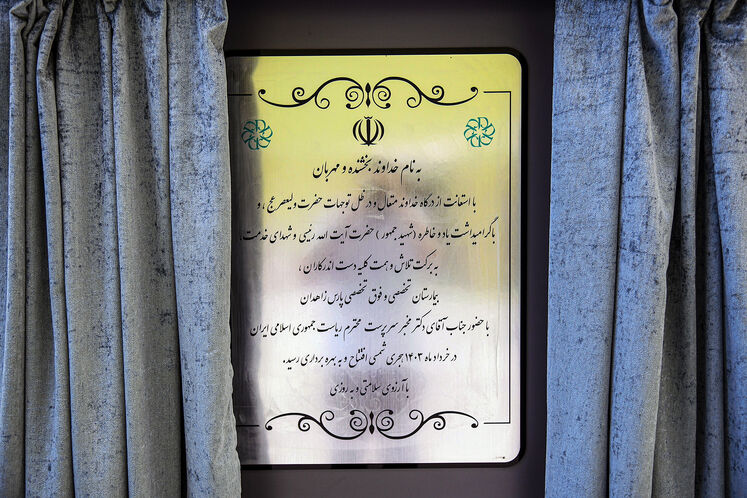 به نام خداوند بخشنده و مهربان
با استعانت از درگاه خداوند متعال و در ظل توجهات حضرت ولیعصر عج ، و
با گرامیداشت یاد و خاطره (شهید جمهور) حضرت آیت الله رئیسی و شهدای خدمت،
به برکت تلاش و همت کلیه دست اندرکاران ،
بیمارستان تخصصی و فوق تخصصی پارس زاهدان
با حضور جناب آقای دکتر مخبر سرپرست محترم ریاست جمهوری اسلامی ایران
در خرداد ماه ۱۴۰۳ هجری شمسی افتتاح و به بهره برداری رسید.
با آرزوی سلامتی و به روزی